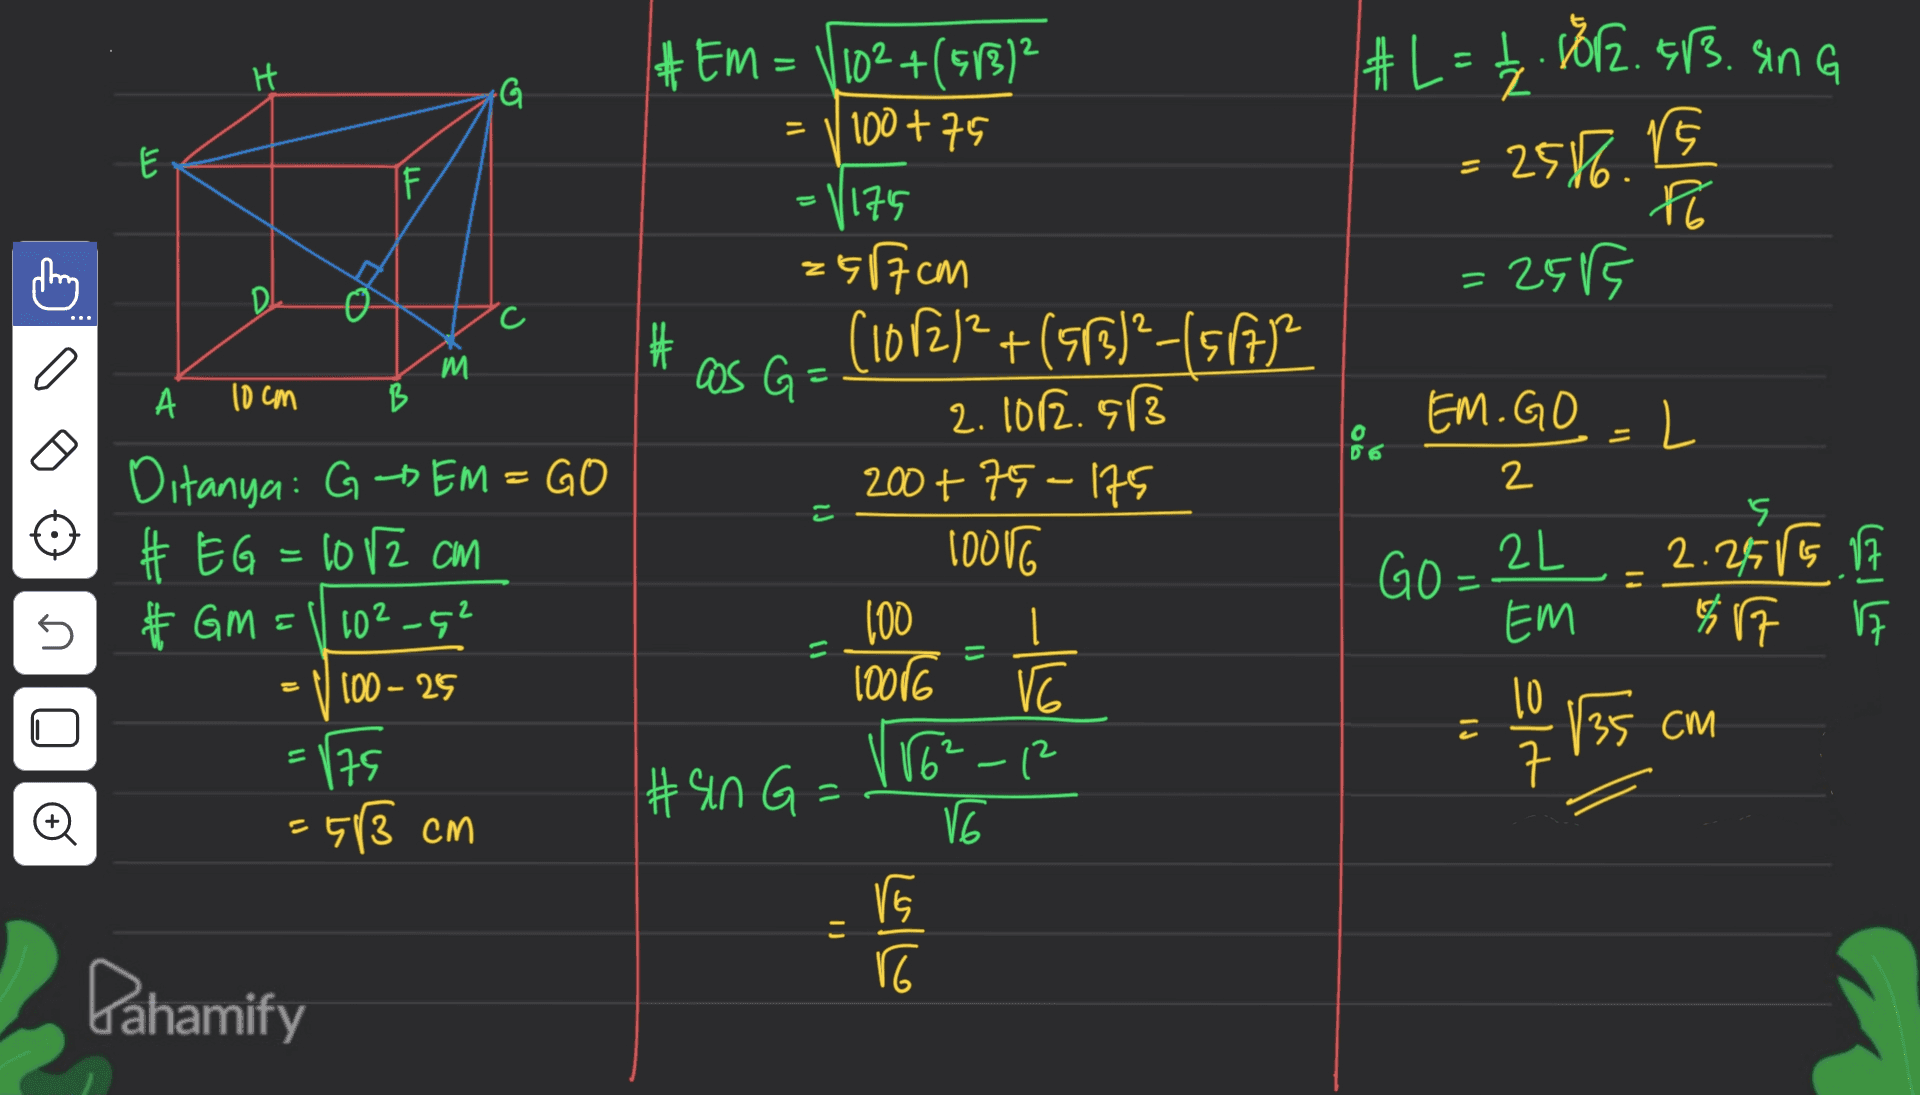 H
G
E
F
D
O
C
M
A
10 cm
B
Ditanya: G → EM = GO
# EG = 10√2 cm
# GM = √10² - 5²
= √100 - 25
= √75
= 5√3 cm
# EM = √10² + (5√3)²
= √100 + 75
= √175
= 5√7 cm
# cos G = (10√2)² + (5√3)² - (5√7)²
2. 10√2. 5√3
= 200 + 75 - 175
100√6
= 100 = 1
100√6 √6
# sin G = √√6² - 1²
√6
= √5
√6
# L = 1/2 . 10√2. 5√3. sin G
5
= 25√6. √5
√6
= 25√5
∴ EM.GO = L
2
5
GO = 2L = 2.25√5 . √7
EM 5√7 √7
= 10 √35 cm
7
Pahamify